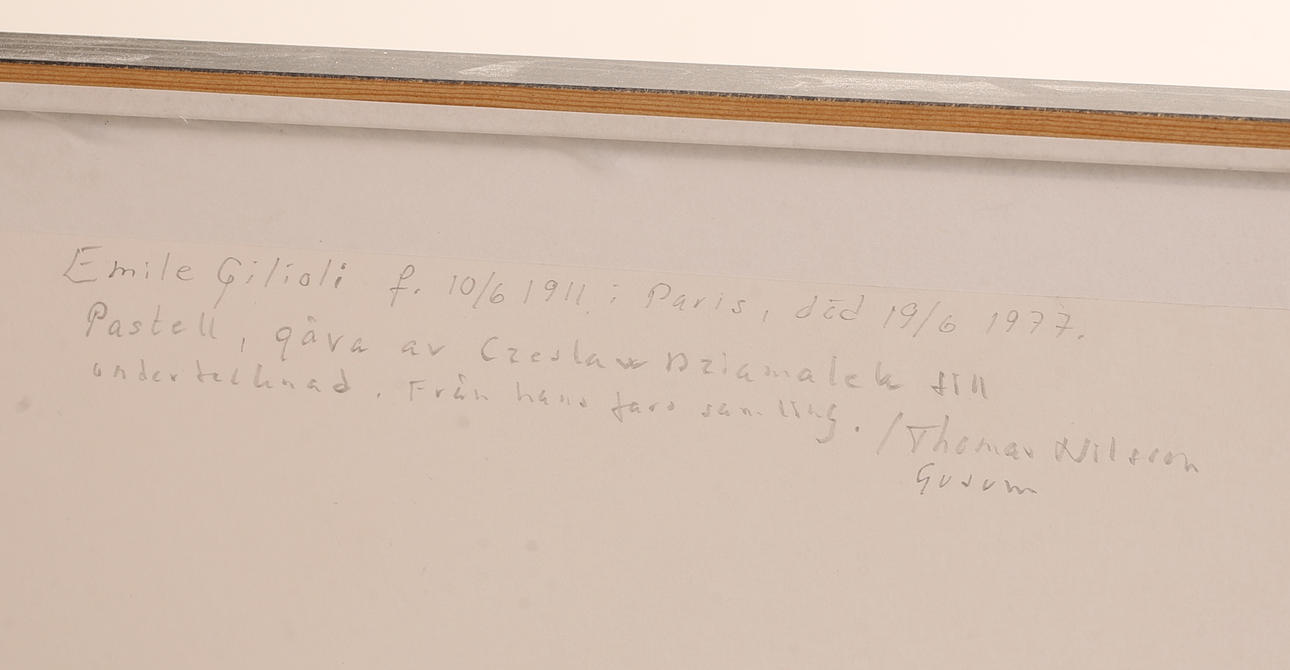 Emile Gilioli f. 10/6 1911 i Paris, död 19/6 1977.
Pastell, gåva av Czeslaw Dziamalek till
undertecknad. Från hans fars samling. /Thomas Nilsson
Gusum